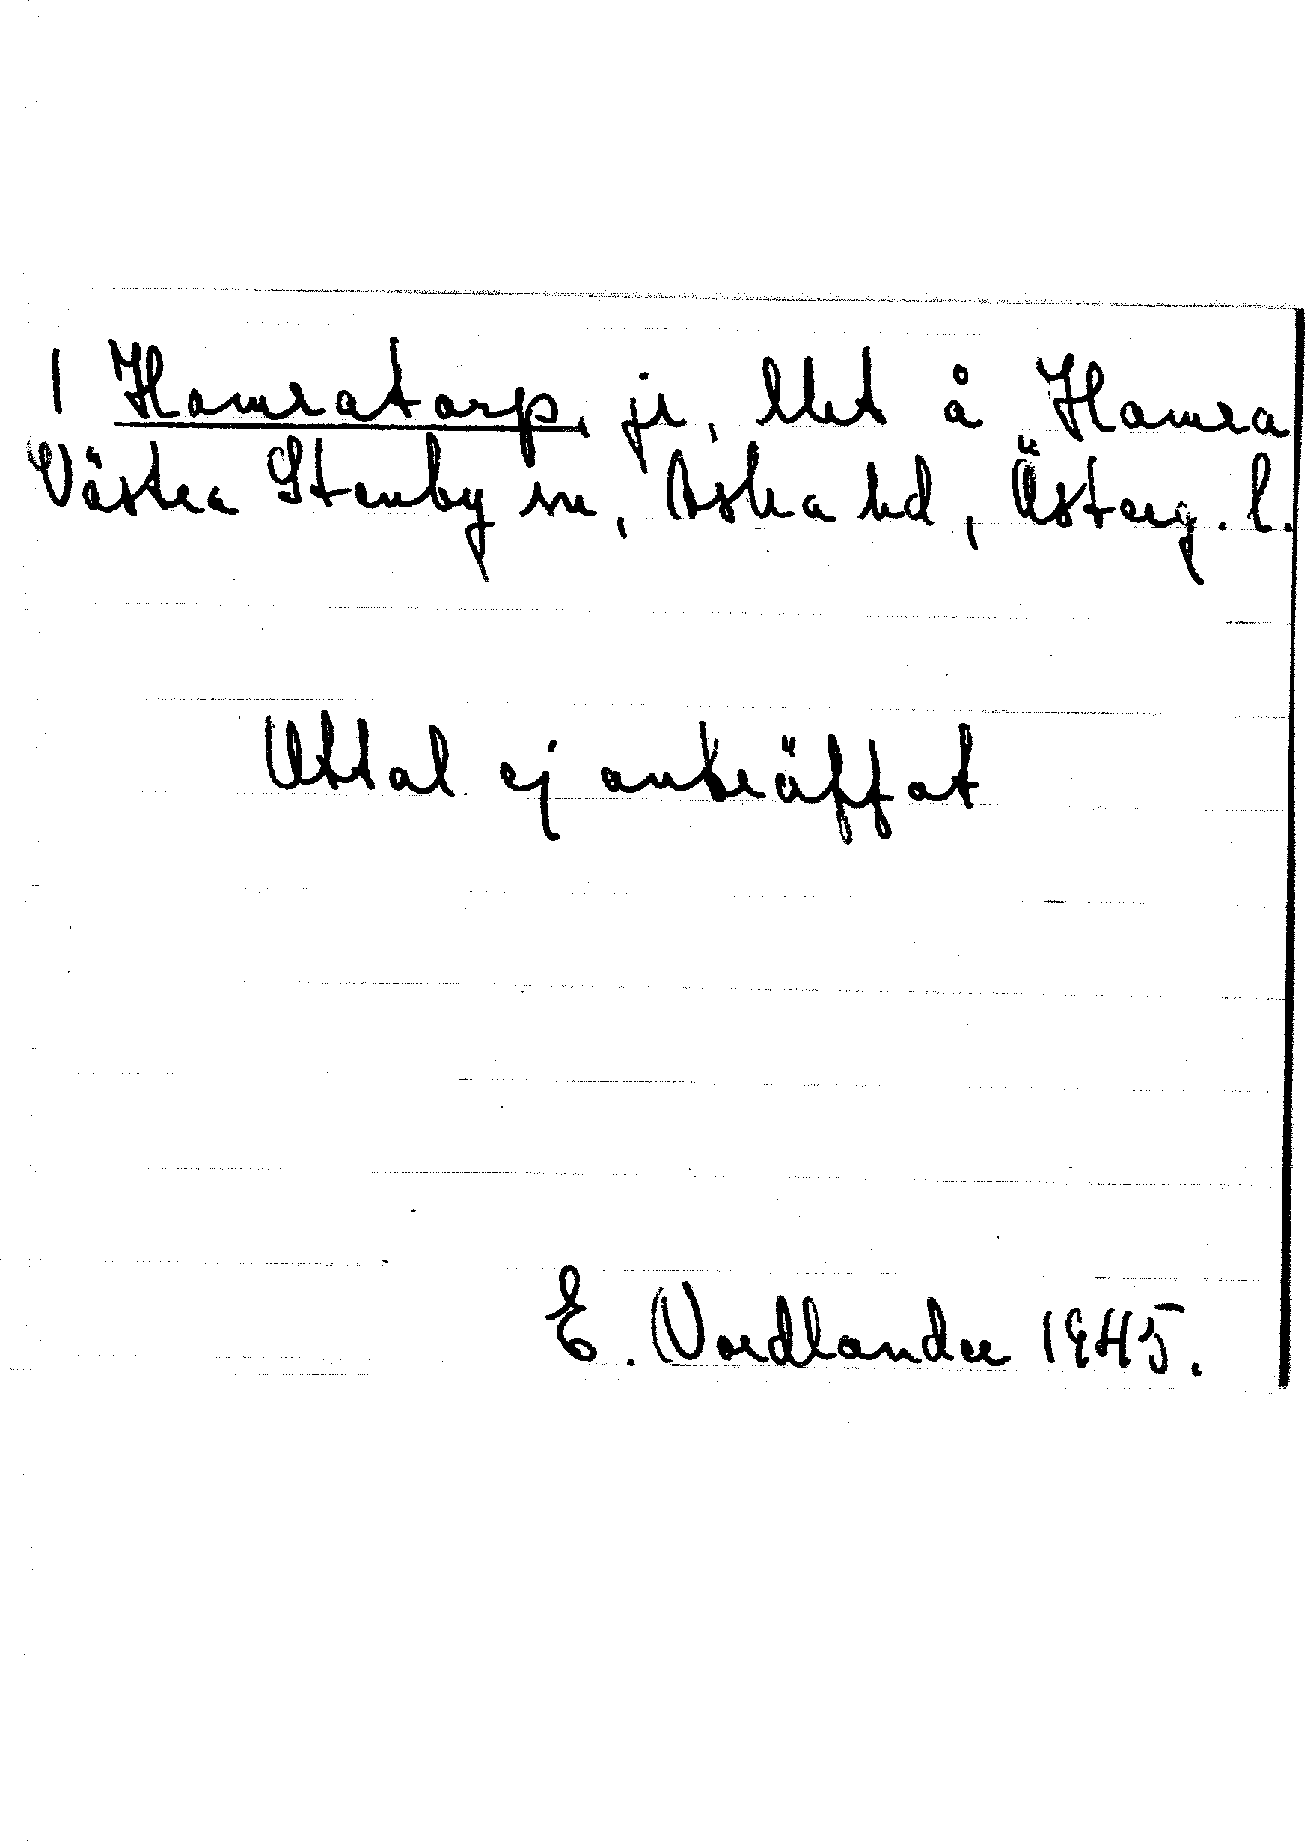 1 Hamratorp, jr, lht å Hamra
Västra Stenby sn, Aska hd, Österg. l.
Uttal ej anträffat
E. Nordlander 1945.